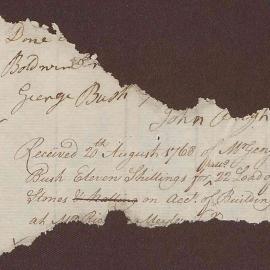 Done
Boldwin
George Bush
John Wrigh
Received 20th August 1768 of Mr Geo
Bush Eleven Shillings for 22 Load
Stones & Halling on Acct. of Building
at Mr